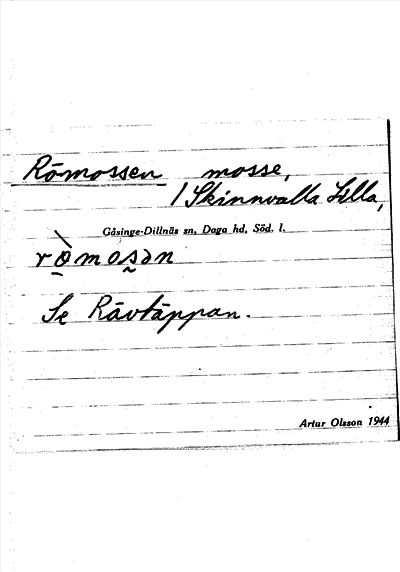 Römossen mosse,
/ Skinnvalla Lilla,
Gåsinge-Dillnäs sn, Daga hd, Söd. l.
ròmosən
Se Rävtäppan.
Artur Olsson 1944